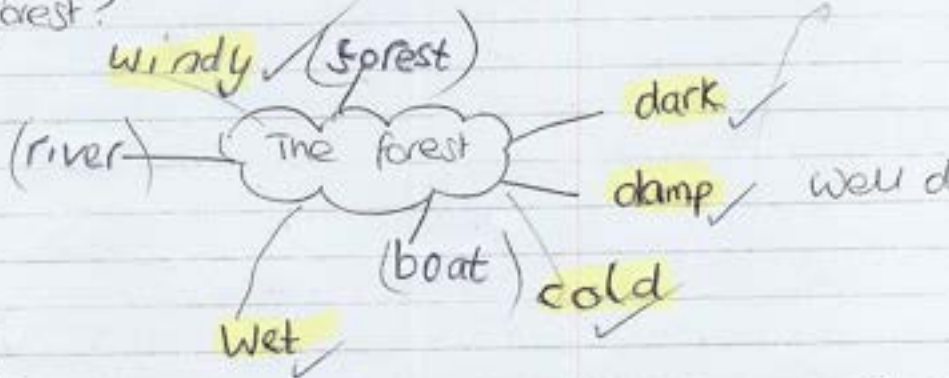 windy (forest)
dark
(river) The forest
damp well d
(boat)
cold
wet